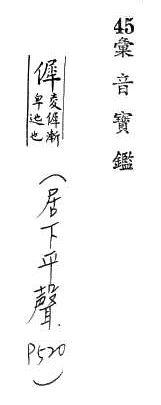 45彙音寶鑑
徲
夌徲漸
卑迆也
(居下平聲 P520)